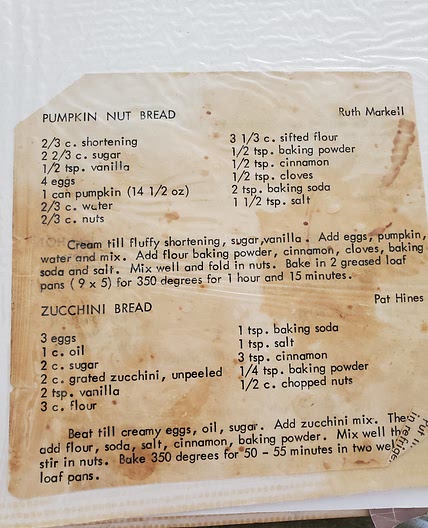 PUMPKIN NUT BREAD Ruth Markeil
2/3 c. shortening
2 2/3 c. sugar
1/2 tsp. vanilla
4 eggs
1 can pumpkin (14 1/2 oz)
2/3 c. water
2/3 c. nuts
3 1/3 c. sifted flour
1/2 tsp. baking powder
1/2 tsp. cinnamon
1/2 tsp. cloves
2 tsp. baking soda
1 1/2 tsp. salt
Cream till fluffy shortening, sugar,vanilla. Add eggs, pumpkin,
water and mix. Add flour baking powder, cinnamon, cloves, baking
soda and salt. Mix well and fold in nuts. Bake in 2 greased loaf
pans ( 9 x 5) for 350 degrees for 1 hour and 15 minutes.
ZUCCHINI BREAD Pat Hines
3 eggs
1 c. oil
2 c. sugar
2 c. grated zucchini, unpeeled
2 tsp. vanilla
3 c. flour
1 tsp. baking soda
1 tsp. salt
3 tsp. cinnamon
1/4 tsp. baking powder
1/2 c. chopped nuts
Beat till creamy eggs, oil, sugar. Add zucchini mix. The
add flour, soda, salt, cinnamon, baking powder. Mix well th
stir in nuts. Bake 350 degrees for 50 - 55 minutes in two wel
loaf pans.
in refrige